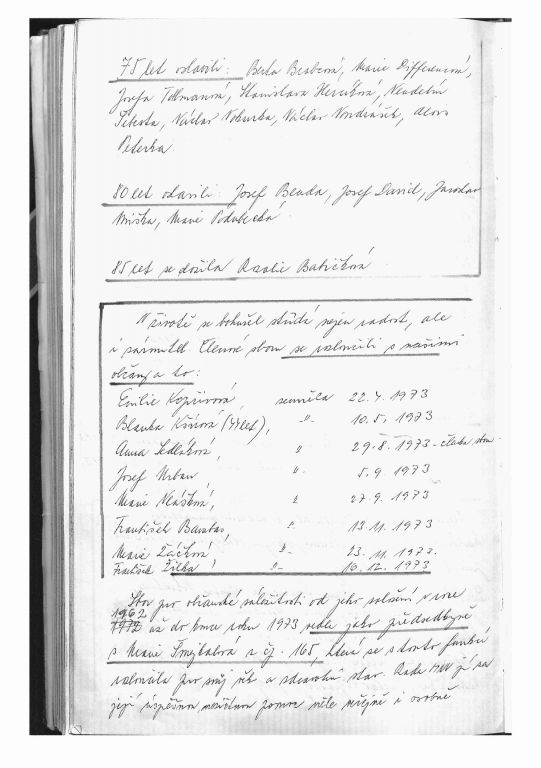 75 let oslavili: Berta Brabcová, Marie Differencová,
Josefa Tollmanová, Stanislava Horčíková,
Šebesta, Václav Vokurka, Václav Vondrášek, Alois
Peterka
80 let oslavili: Josef Benda, Josef David, Jaroslav
Miška, Marie Podubecká
85 let se dožila Rozalie Babičková
V životě se bohužel střídá nejen radost, ale
i zármutek. Členové sboru se rozloučili s našimi
občany a to:
Emilie Kopřivová, zemřela 22.4.1973
Blanka (44 let), -"- 10.5.1973
Anna Sedláková, " 29.8.1973 - členka sboru
Josef Urban, ". 5.9.1973
Marie Vlášková, " 27.9.1973
František " 13.11.1973
Marie Žáčková, "- 23.11.1973.
František Žilka, "- 16.12.1973
Sbor pro občanské záležitosti od jeho založení v roce
1962
1972 až do konce roku 1973 vedla jako předsedkyně
s. Marie Šmejkalová z čj. 165, která se s touto funkcí
rozloučila pro svůj věk a zdravotní stav. Rada MNV jí za
její úspěšnou, náročnou pomoc veřejně i osobně